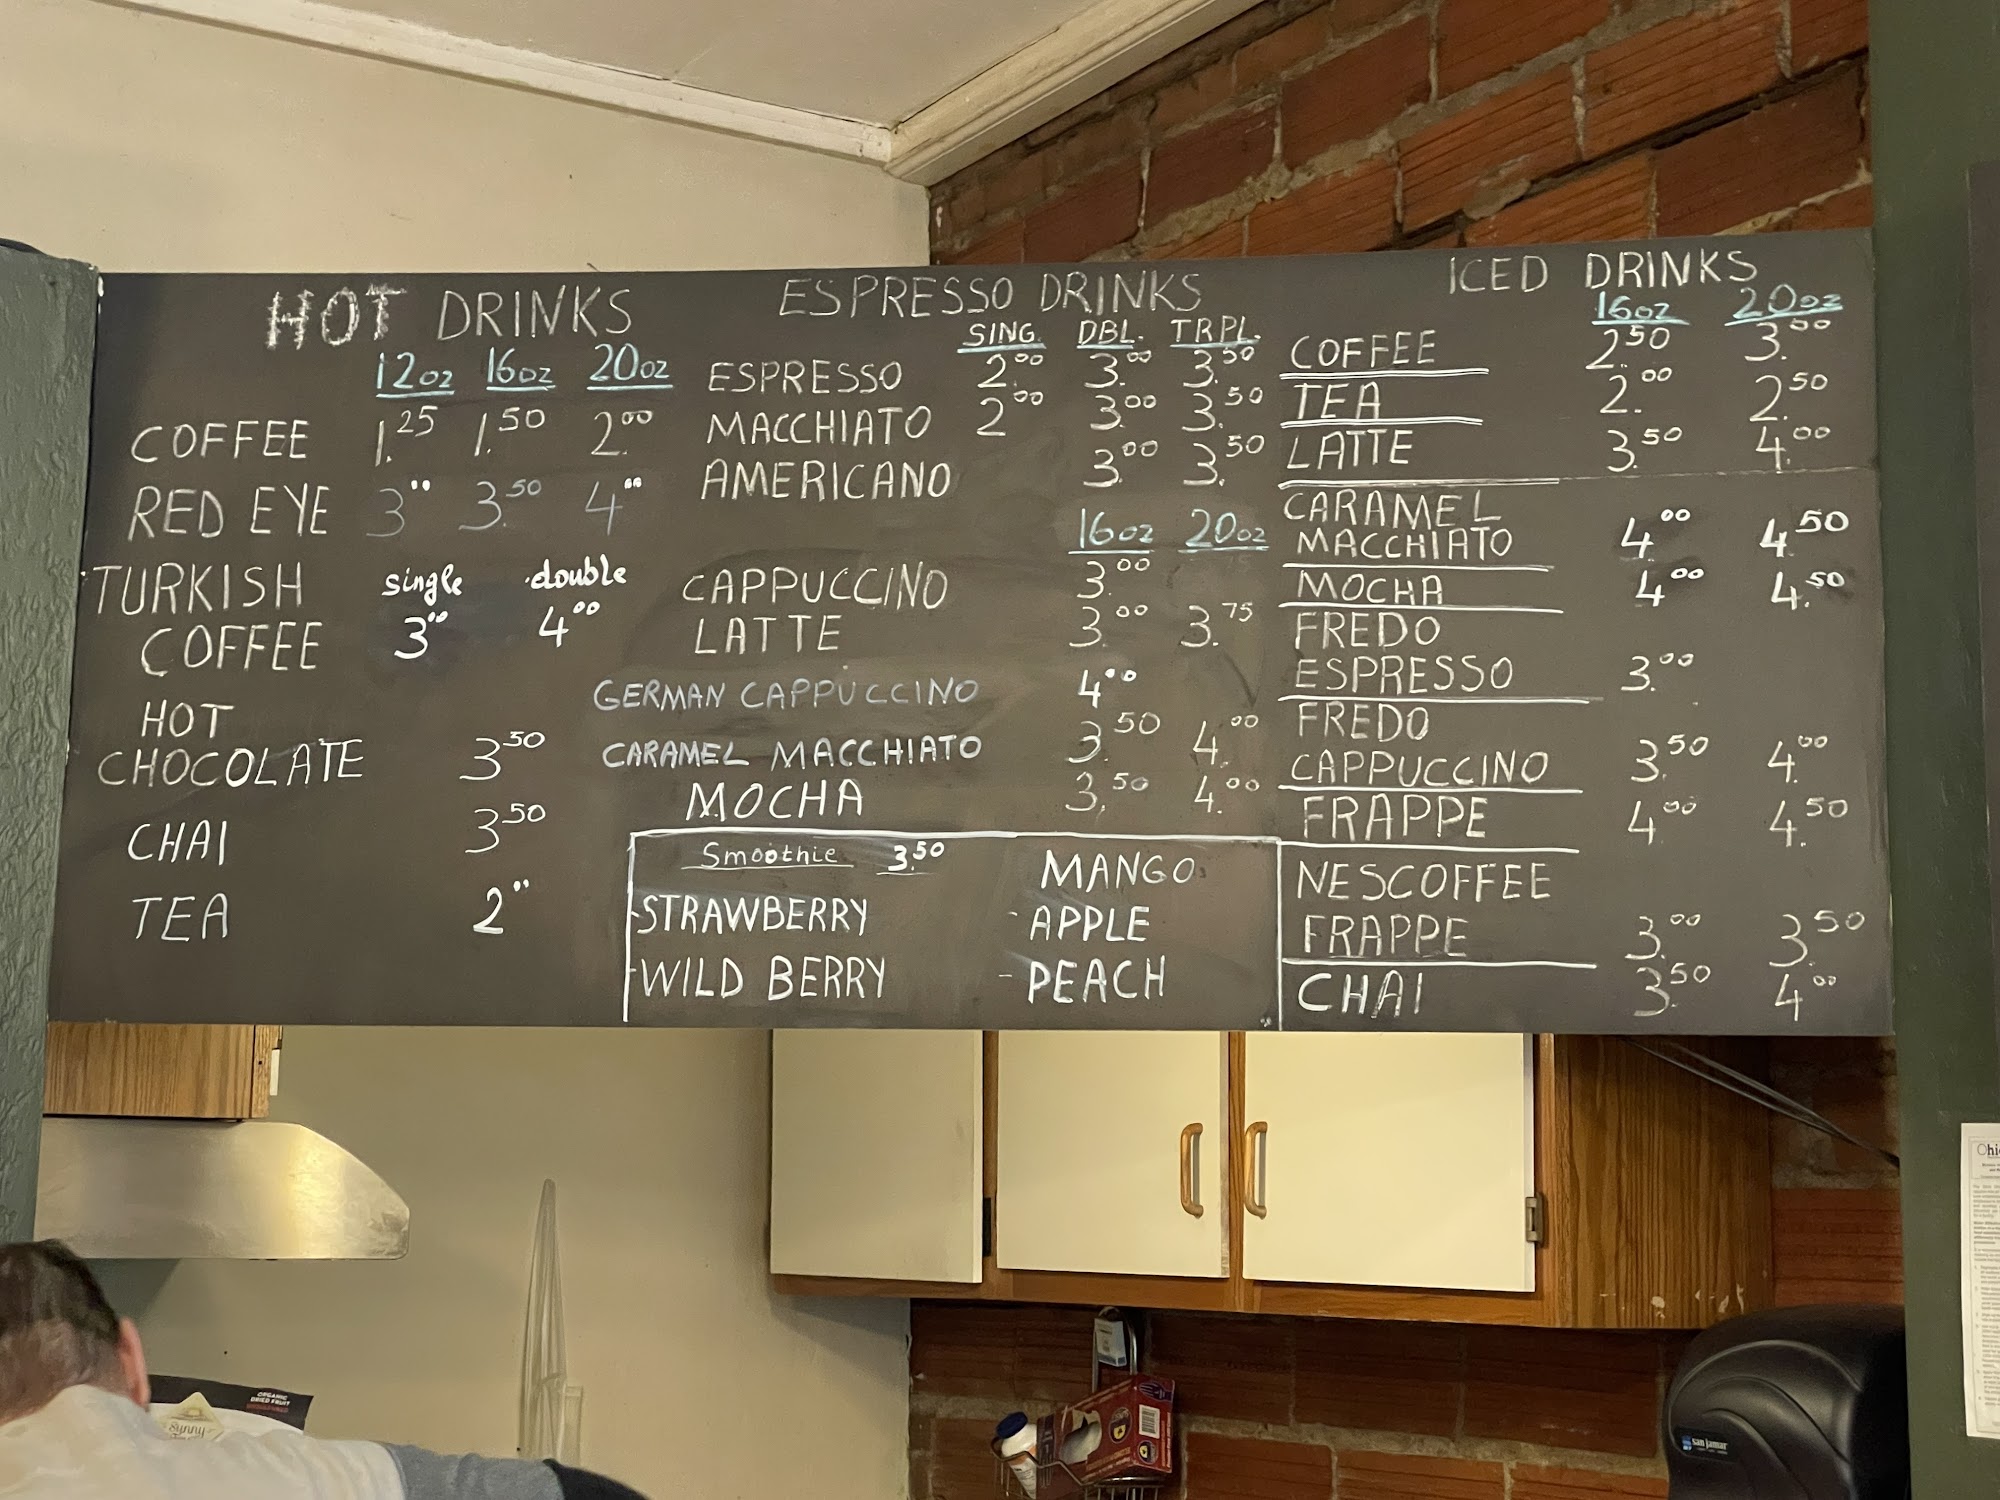 HOT DRINKS
12oz 16oz 20oz
COFFEE 1.25 1.50 2.00
RED EYE 3.00 3.50 4.00
TURKISH single double
COFFEE 3.00 4.00
HOT
CHOCOLATE 3.50
CHAI 3.50
TEA 2.00
ESPRESSO DRINKS
SING. DBL. TRPL.
ESPRESSO 2.00 3.00 3.50
MACCHIATO 2.00 3.00 3.50
AMERICANO 3.00 3.50
16oz 20oz
CAPPUCCINO 3.00
LATTE 3.00 3.75
GERMAN CAPPUCCINO 4.00
CARAMEL MACCHIATO 3.50 4.00
MOCHA 3.50 4.00
Smoothie 3.50
MANGO
-STRAWBERRY - APPLE
-WILD BERRY - PEACH
ICED DRINKS
16oz 20oz
COFFEE 2.50 3.00
TEA 2.00 2.50
LATTE 3.50 4.00
CARAMEL
MACCHIATO 4.00 4.50
MOCHA 4.00 4.50
FREDO
ESPRESSO 3.00
FREDO
CAPPUCCINO 3.50 4.00
FRAPPE 4.00 4.50
NESCOFFEE
FRAPPE 3.00 3.50
CHAI 3.50 4.00
ORGANIC
DRIED FRUIT
Sunny
san jamar